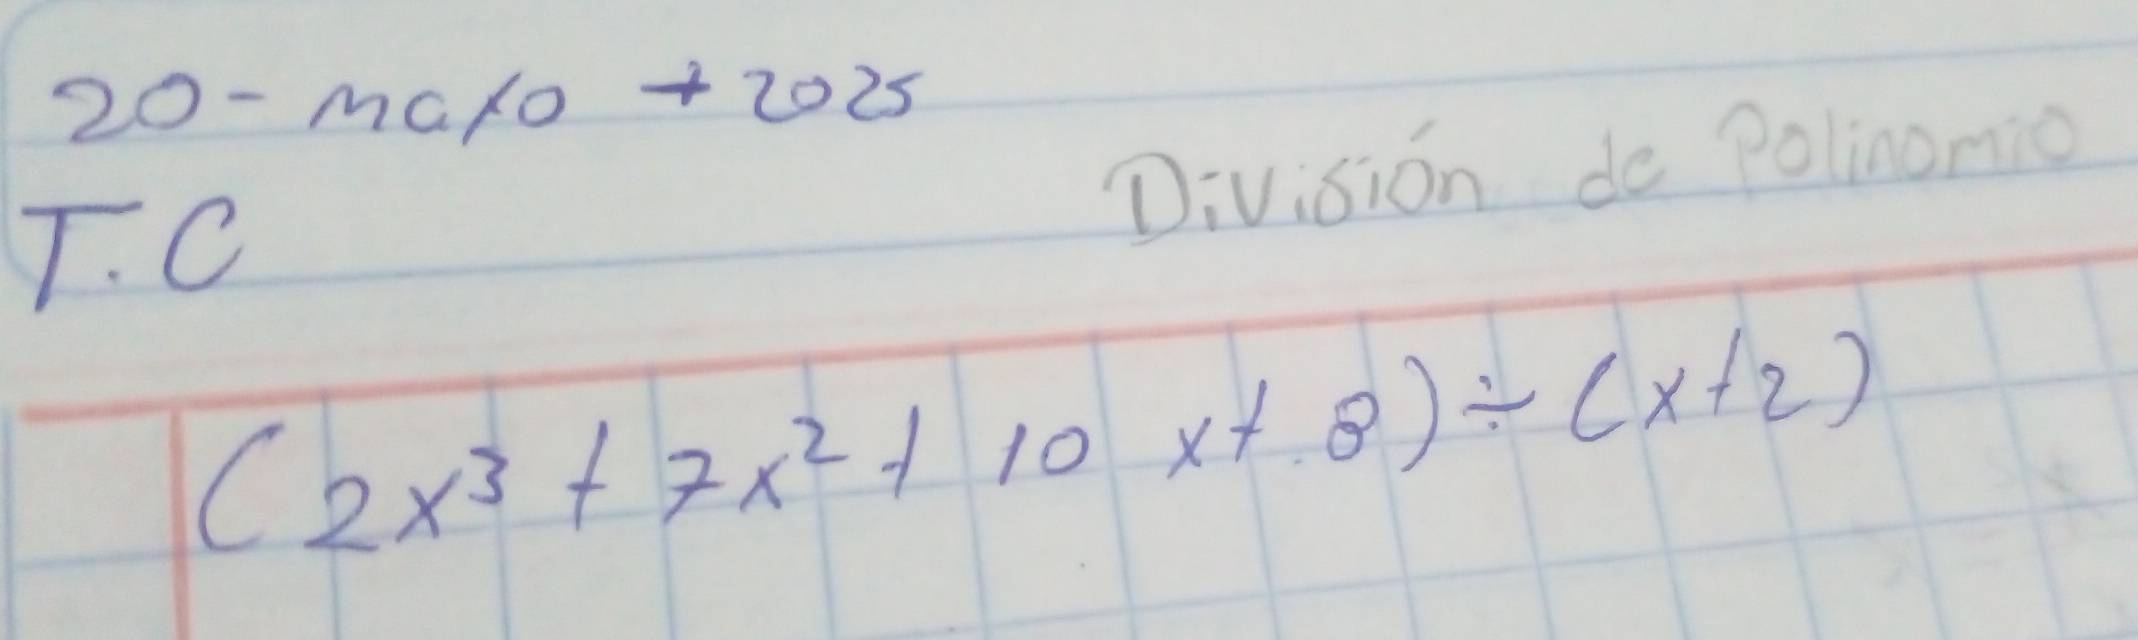 20 - mayo + 2025
T.C
División de Polinomio
(2x³ + 7x² + 10 x + 8) ÷ (x + 2)